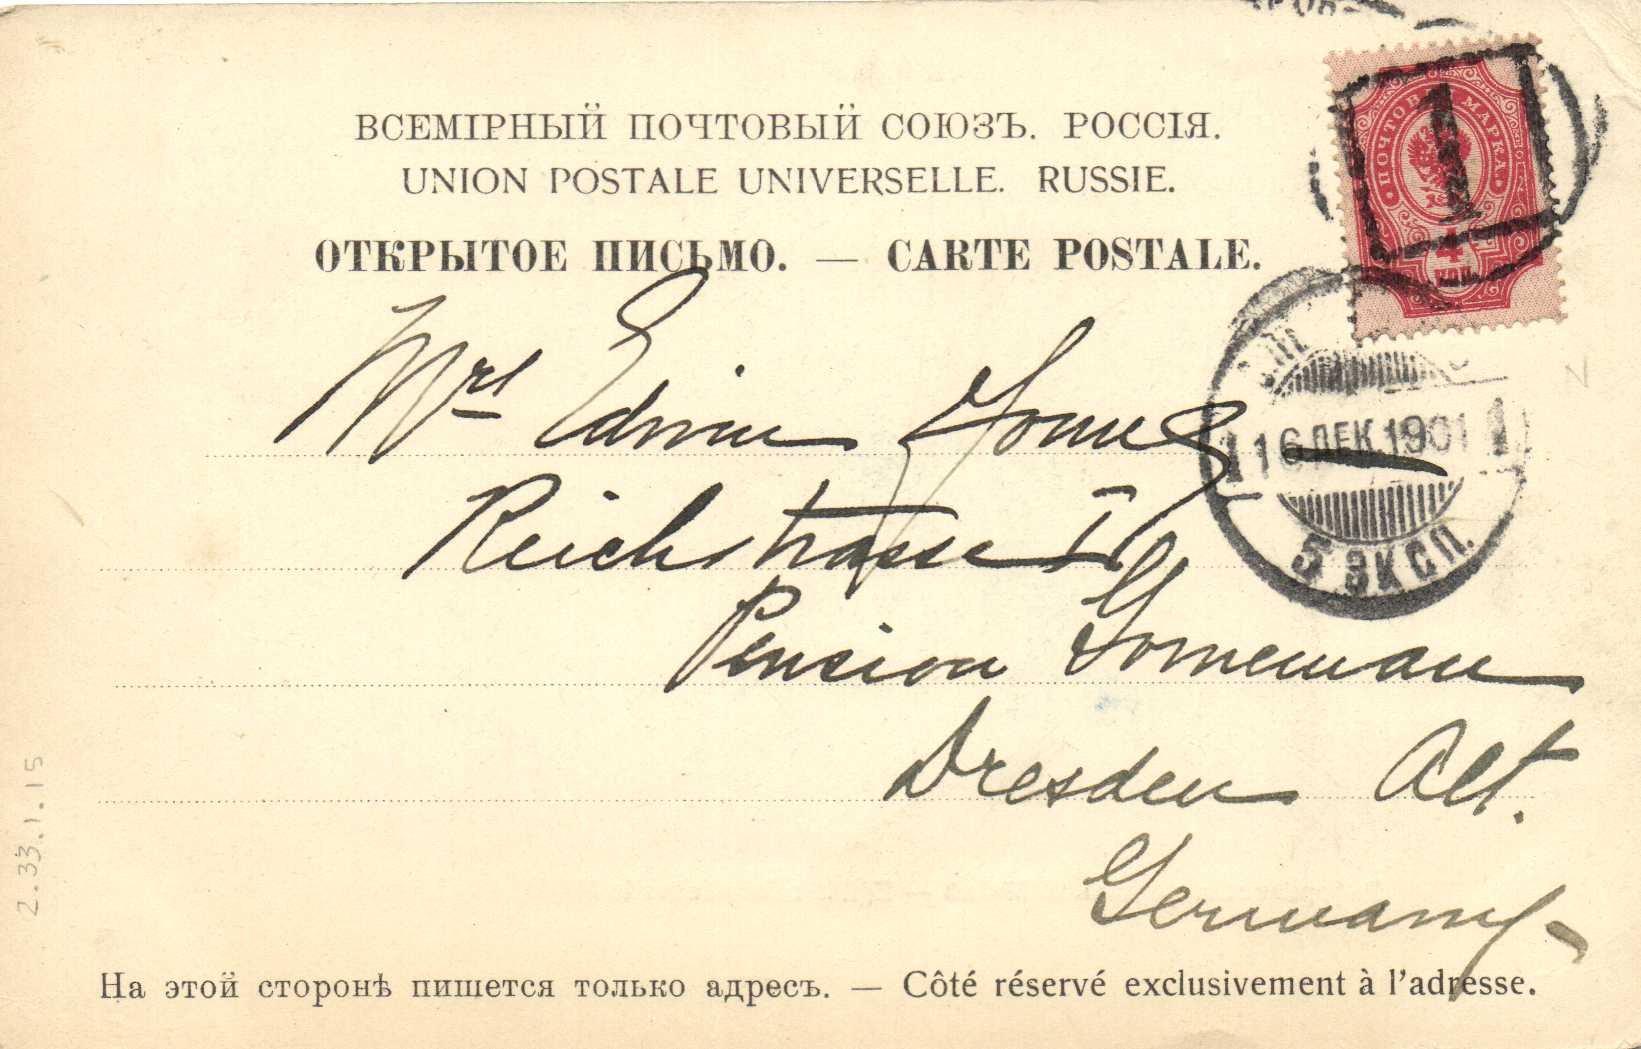 ВСЕМІРНЫЙ ПОЧТОВЫЙ СОЮЗЪ. РОССІЯ.
UNION POSTALE UNIVERSELLE. RUSSIE.
ОТКРЫТОЕ ПИСЬМО. — CARTE POSTALE.
ПОЧТОВАЯ МАРКА
1
4
КОП.
Mrs Edwin
1 16 ДЕК 1901 1
5 ЭКСП.
Reichstrasse
Pension
Dresden Alt.
Germany
2.33.1.15
На этой сторонѣ пишется только адресъ. — Côté réservé exclusivement à l'adresse.